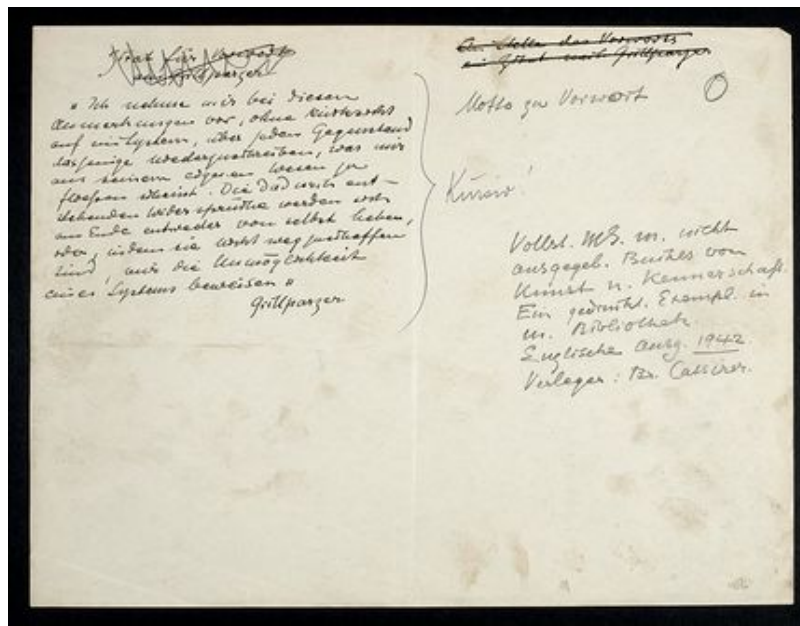 "Ich nehme mir bei diesen
Anmerkungen vor, ohne Rücksicht
auf ein System, über jeden Gegenstand
dasjenige niederzuschreiben, was mir
aus seinem eigenen Wesen zu
fliessen scheint. Die Dadurch ent-
stehenden Widersprüche werden sich
am Ende entweder von selbst heben,
oder, indem sie nicht wegzuschaffen
sind, mir die Unmöglichkeit
eines Systems beweisen"
Grillparzer
An Stelle des Vorworts
ein Zitat nach Grillparzer
Motto zu Vorwort
Kursiv!
Vollst. MS. m. nicht
ausgegeb. Buches von
Kunst u. Kennerschaft.
Ein gedruckt. Exempl. in
m. Bibliothek.
Englische Ausg. 1942
Verleger: Br. Cassirer.